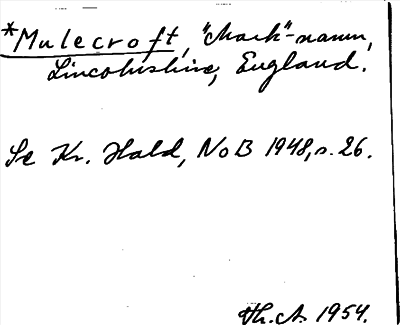 *Mulecroft, "Mark"-navn,
Lincolnshire, England.
Se Kr. Hald, NoB 1948, s. 26.
Th. A. 1954.